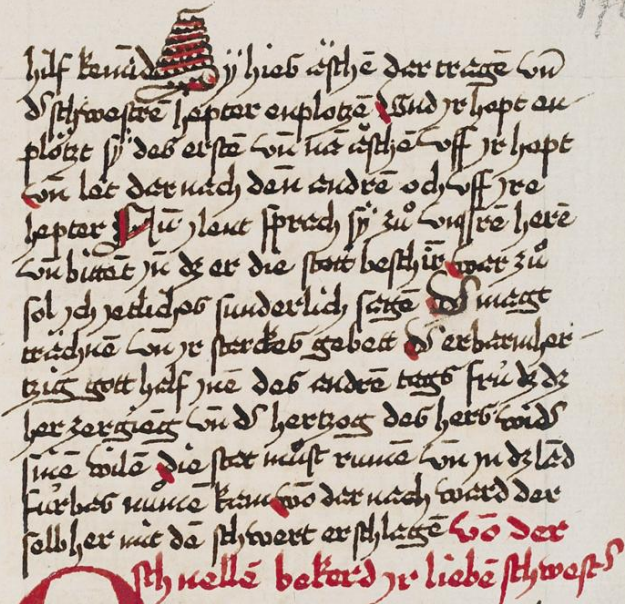 hilf kemād Sy hies äschē dar tragē vn̄
d' schwestrē hepter enplotzē Vnd yr hopt en
plötzt sy des erstē vn̄ nā äschē vff yr hopt
vn̄ leit dar nach den andrē och vff yre
hepter Nū ylent sprach sy zů vnsrē herē
vn̄ bittēt jn dz er die statt beschir war zů
sol ych yetliches sunderlich sagē D' magt
trächnē vn̄ yr starckes gebett D' erbarmher
tzig gott half ynē des andrē tags frů dz dz
her zergieng vn̄ d' hertzog des hers wid'
sinē wilē die stat můst rumē vn̄ yn dz lād
fürbas nūmē kam wō dar nach ward der
selb her mit dē schwert erschlagē vō der
schnellē bekerd yr liebē schwest'